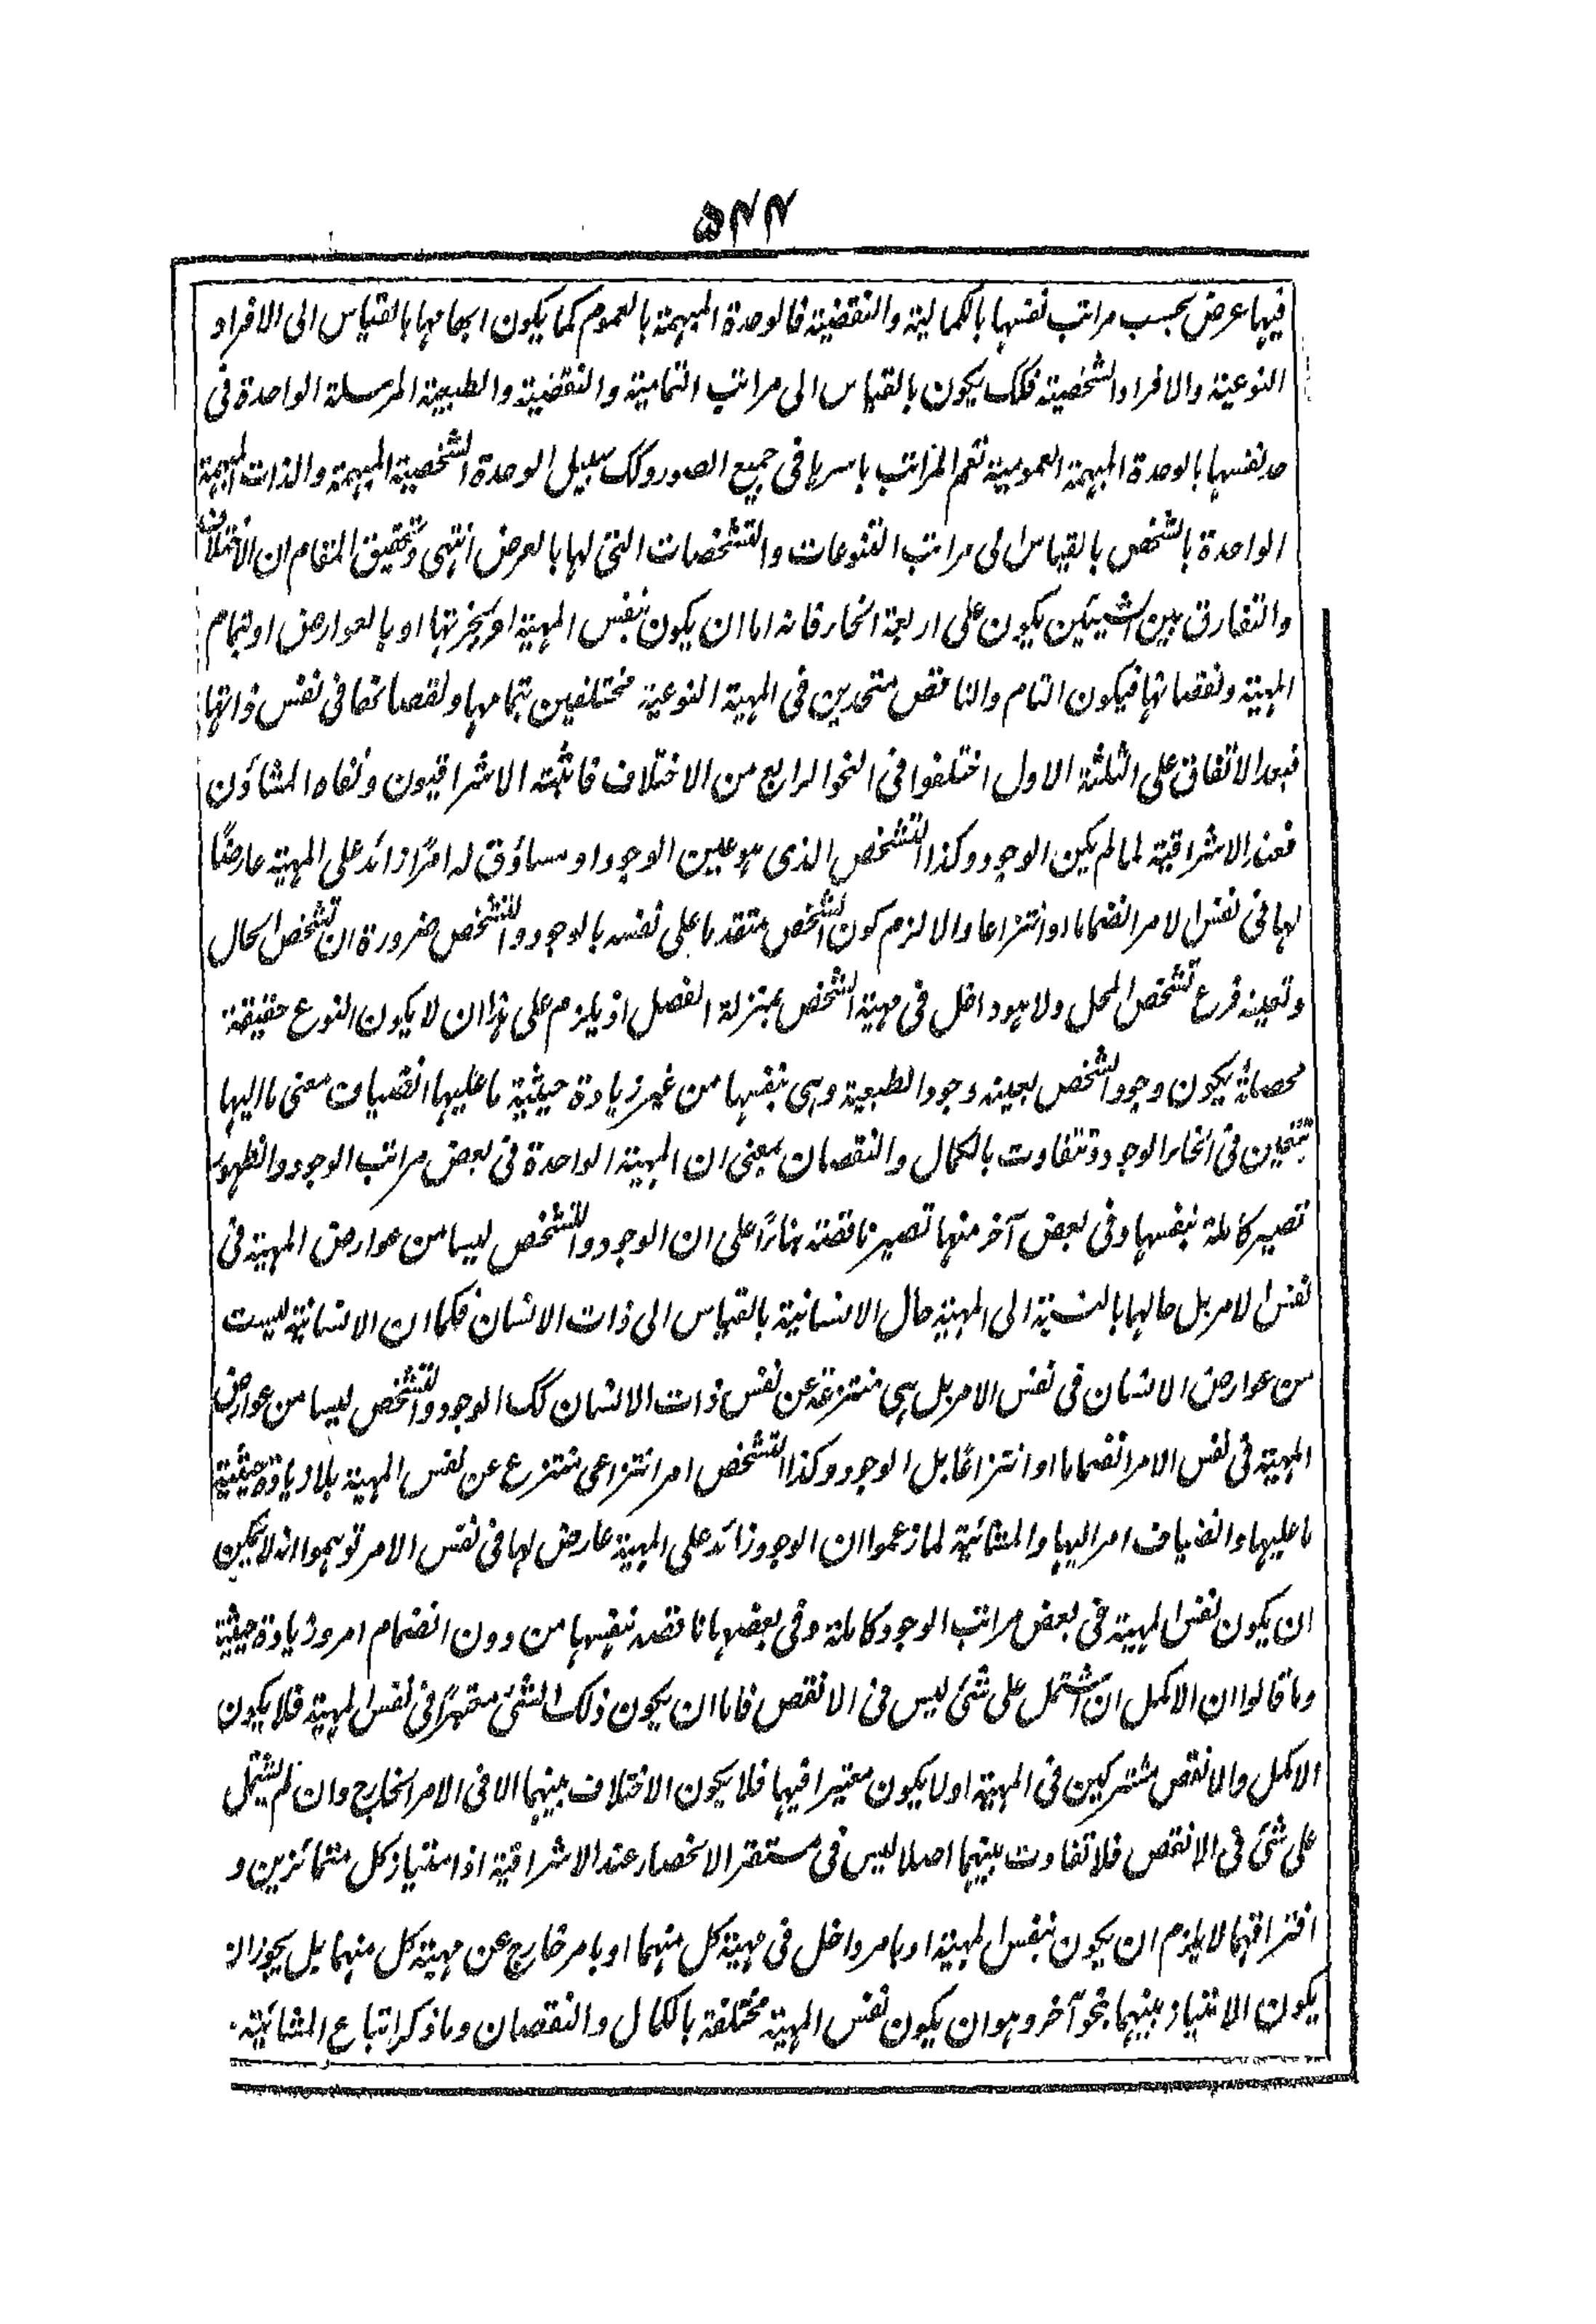 ۵۴۴
فيها عرض بحسب مراتب نفسها بالكمالية والنقضية فالوحدة المبهمة بالعموم كما يكون ابهامها بالقياس الى الافراد
النوعية والافراد الشخصية فكك يكون بالقياس الى مراتب التمامية والنقضية والطبيعة المرسلة الواحدة فى
حد نفسها بالوحدة المبهمة العمومية تعم المراتب باسرها فى جميع الصور وكك سبيل الوحدة الشخصية المبهمة والذات المبهمة
الواحدة بالشخص بالقياس الى مراتب التنوعات والتشخصات التى لها بالعرض انتهى وتحقيق المقام ان الاختلاف
والتفارق بين الشيئين يكون على اربعة انحاء فانه اما ان يكون بنفس المهية او بجزئها او بالعوارض او بتمام
المهية ونقصانها فيكون التام والناقص متحدين فى المهية النوعية مختلفين بتمامها ونقصانها فى نفس ذاتها
فبعد الاتفاق على الثلثة الاول اختلفوا فى النحو الرابع من الاختلاف فاثبته الاشراقيون ونفاه المشاؤن
فعند الاشراقية لما لم يكن الوجود وكذا التشخص الذى هو عين الوجود او مساوق له امرًا زائد على المهية عارضًا
لها فى نفس الامر انضماما او انتزاعا والا لزم كون الشخص متقدما على نفسه بالوجود والتشخص ضرورة ان تشخص الحال
وتعينه فرع تشخص المحل ولا هو داخل فى مهية الشخص بمنزلة الفصل اذ يلزم على هذا ان لا يكون النوع حقيقة
محصلة يكون وجود الشخص بعينه وجود الطبعية وهى بنفسها من غير زيادة حيثية ما عليها انضياف معنى ما اليها
تتعين فى انحاء الوجود وتتفاوت بالكمال والنقصان بمعنى ان المهية الواحدة فى بعض مراتب الوجود والظهور
تصير كاملة بنفسها وفى بعض آخر منها تصير ناقصة بناءً على ان الوجود والتشخص ليسا من عوارض المهية فى
نفس الامر بل حالهما بالنسبة الى المهية حال الانسانية بالقياس الى ذات الانسان فكما ان الانسانية ليست
من عوارض الانسان فى نفس الامر بل هى منتزعة عن نفس ذات الانسان كك الوجود والتشخص ليسا من عوارض
المهية فى نفس الامر انضماما او انتزاعًا بل الوجود وكذا التشخص امر انتزاعى منتزع عن نفس المهية بلا زيادة حيثية
ما عليها وانضياف امر اليها والمشائية لما زعموا ان الوجود زائد على المهية عارض لها فى نفس الامر توهموا انه لا يمكن
ان يكون نفس المهية فى بعض مراتب الوجود كاملة وفى بعضها ناقصه بنفسها من دون انضمام امر وزيادة حيثية
وما قالوا ان الاكمل ان اشتمل على شئ ليس فى الانقص فاما ان يكون ذلك الشئ معتبرًا فى نفس المهية فلا يكون
الاكمل والانقص مشتركين فى المهية او لا يكون معتبرا فيها فلا يكون الاختلاف بينهما الا فى الامر الخارج وان لم يشتمل
على شئ فى الانقص فلا تفاوت بينهما اصلا ليس فى مستقر الانحصار عند الاشراقية اذ امتياز كل متمائزين و
افتراقهما لا يلزم ان يكون بنفس المهية او بامر داخل فى مهية كل منهما او بامر خارج عن مهية كل منهما بل يجوز ان
يكون الامتياز بينهما بنحو آخر وهو ان يكون نفس المهية مختلفة بالكمال والنقصان وما ذكر اتباع المشائية